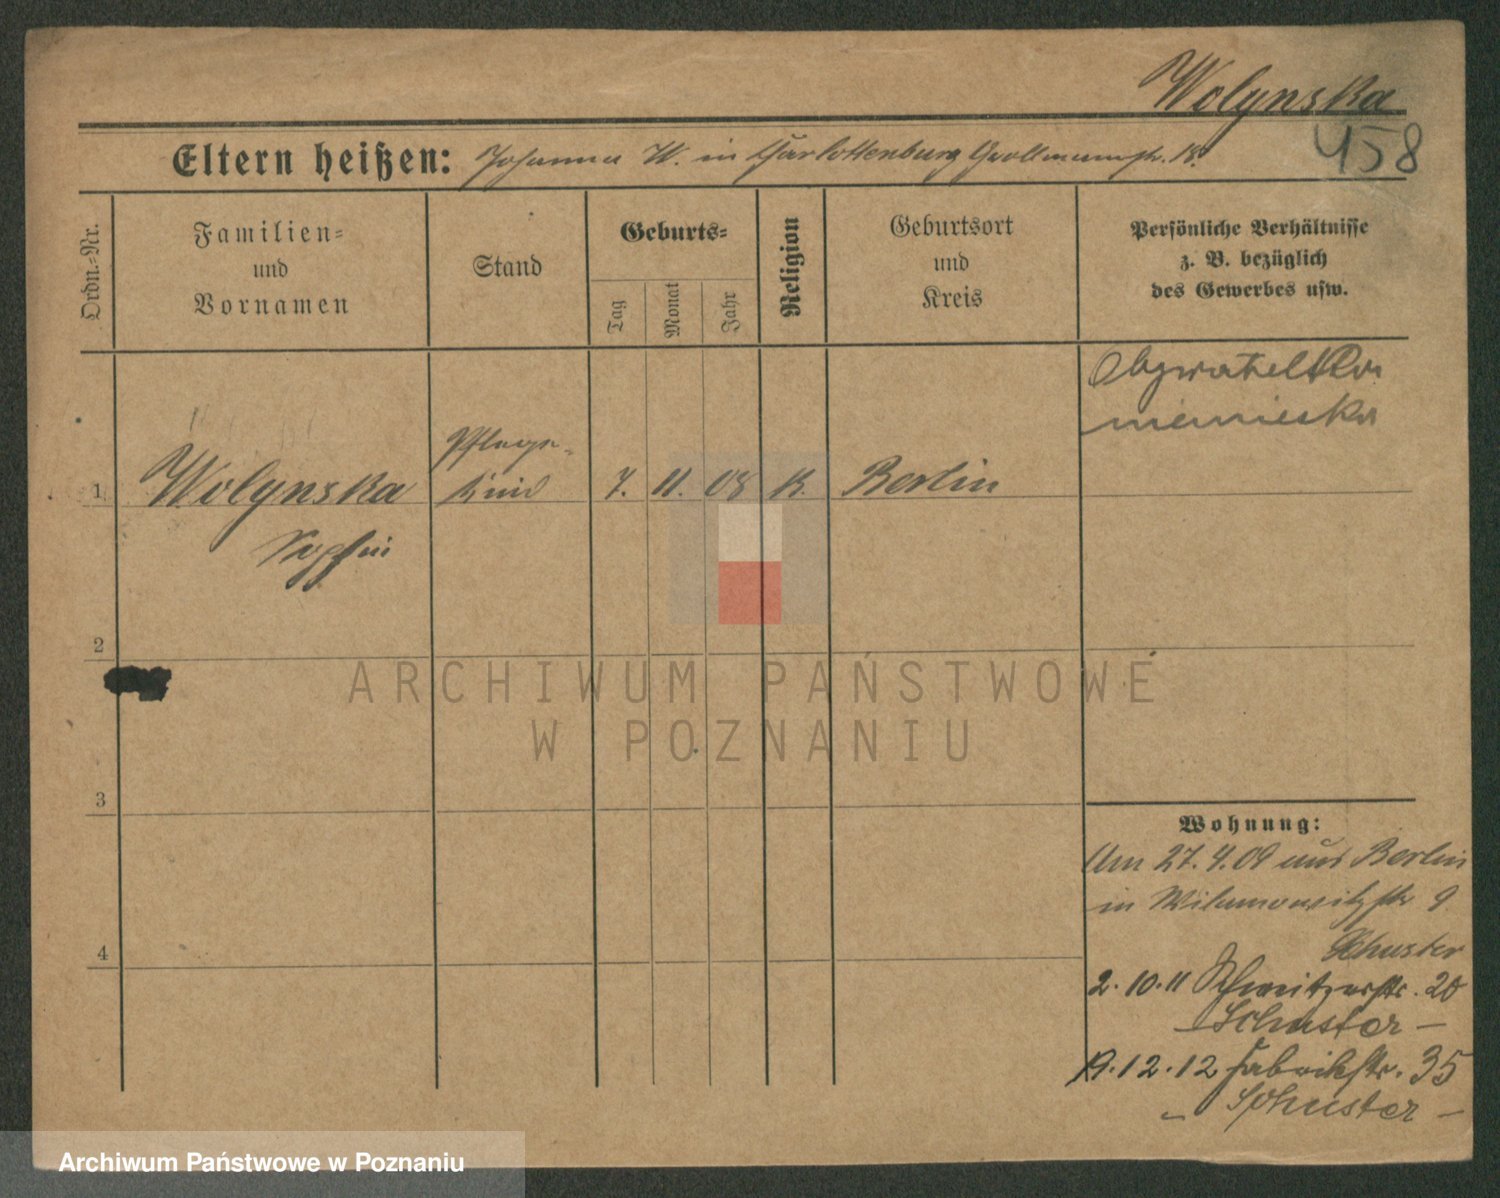 Wolynska
458
Eltern heißen: Johanna W. in Charlottenburg Grollmannstr. 18.
Ordn.-Nr.
Familien-
und
Vornamen
Stand
Geburts-
Tag
Monat
Jahr
Religion
Geburtsort
und
Kreis
Persönliche Verhältnisse
z. B. bezüglich
des Gewerbes usw.
Obywatelka
niemiecka
1
Wolynska
Pflege-
kind
7. 11. 08 K. Berlin
Sophie
2
ARCHIWUM PAŃSTWOWE
W POZNANIU
3
Wohnung:
Am 27.4.09 aus Berlin
in Wilamowitzstr 9
Schuster
4
2.10.11 Schweitzerstr. 20
- Schuster -
19.12.12 Fabrikstr. 35
- Schuster -
Archiwum Państwowe w Poznaniu